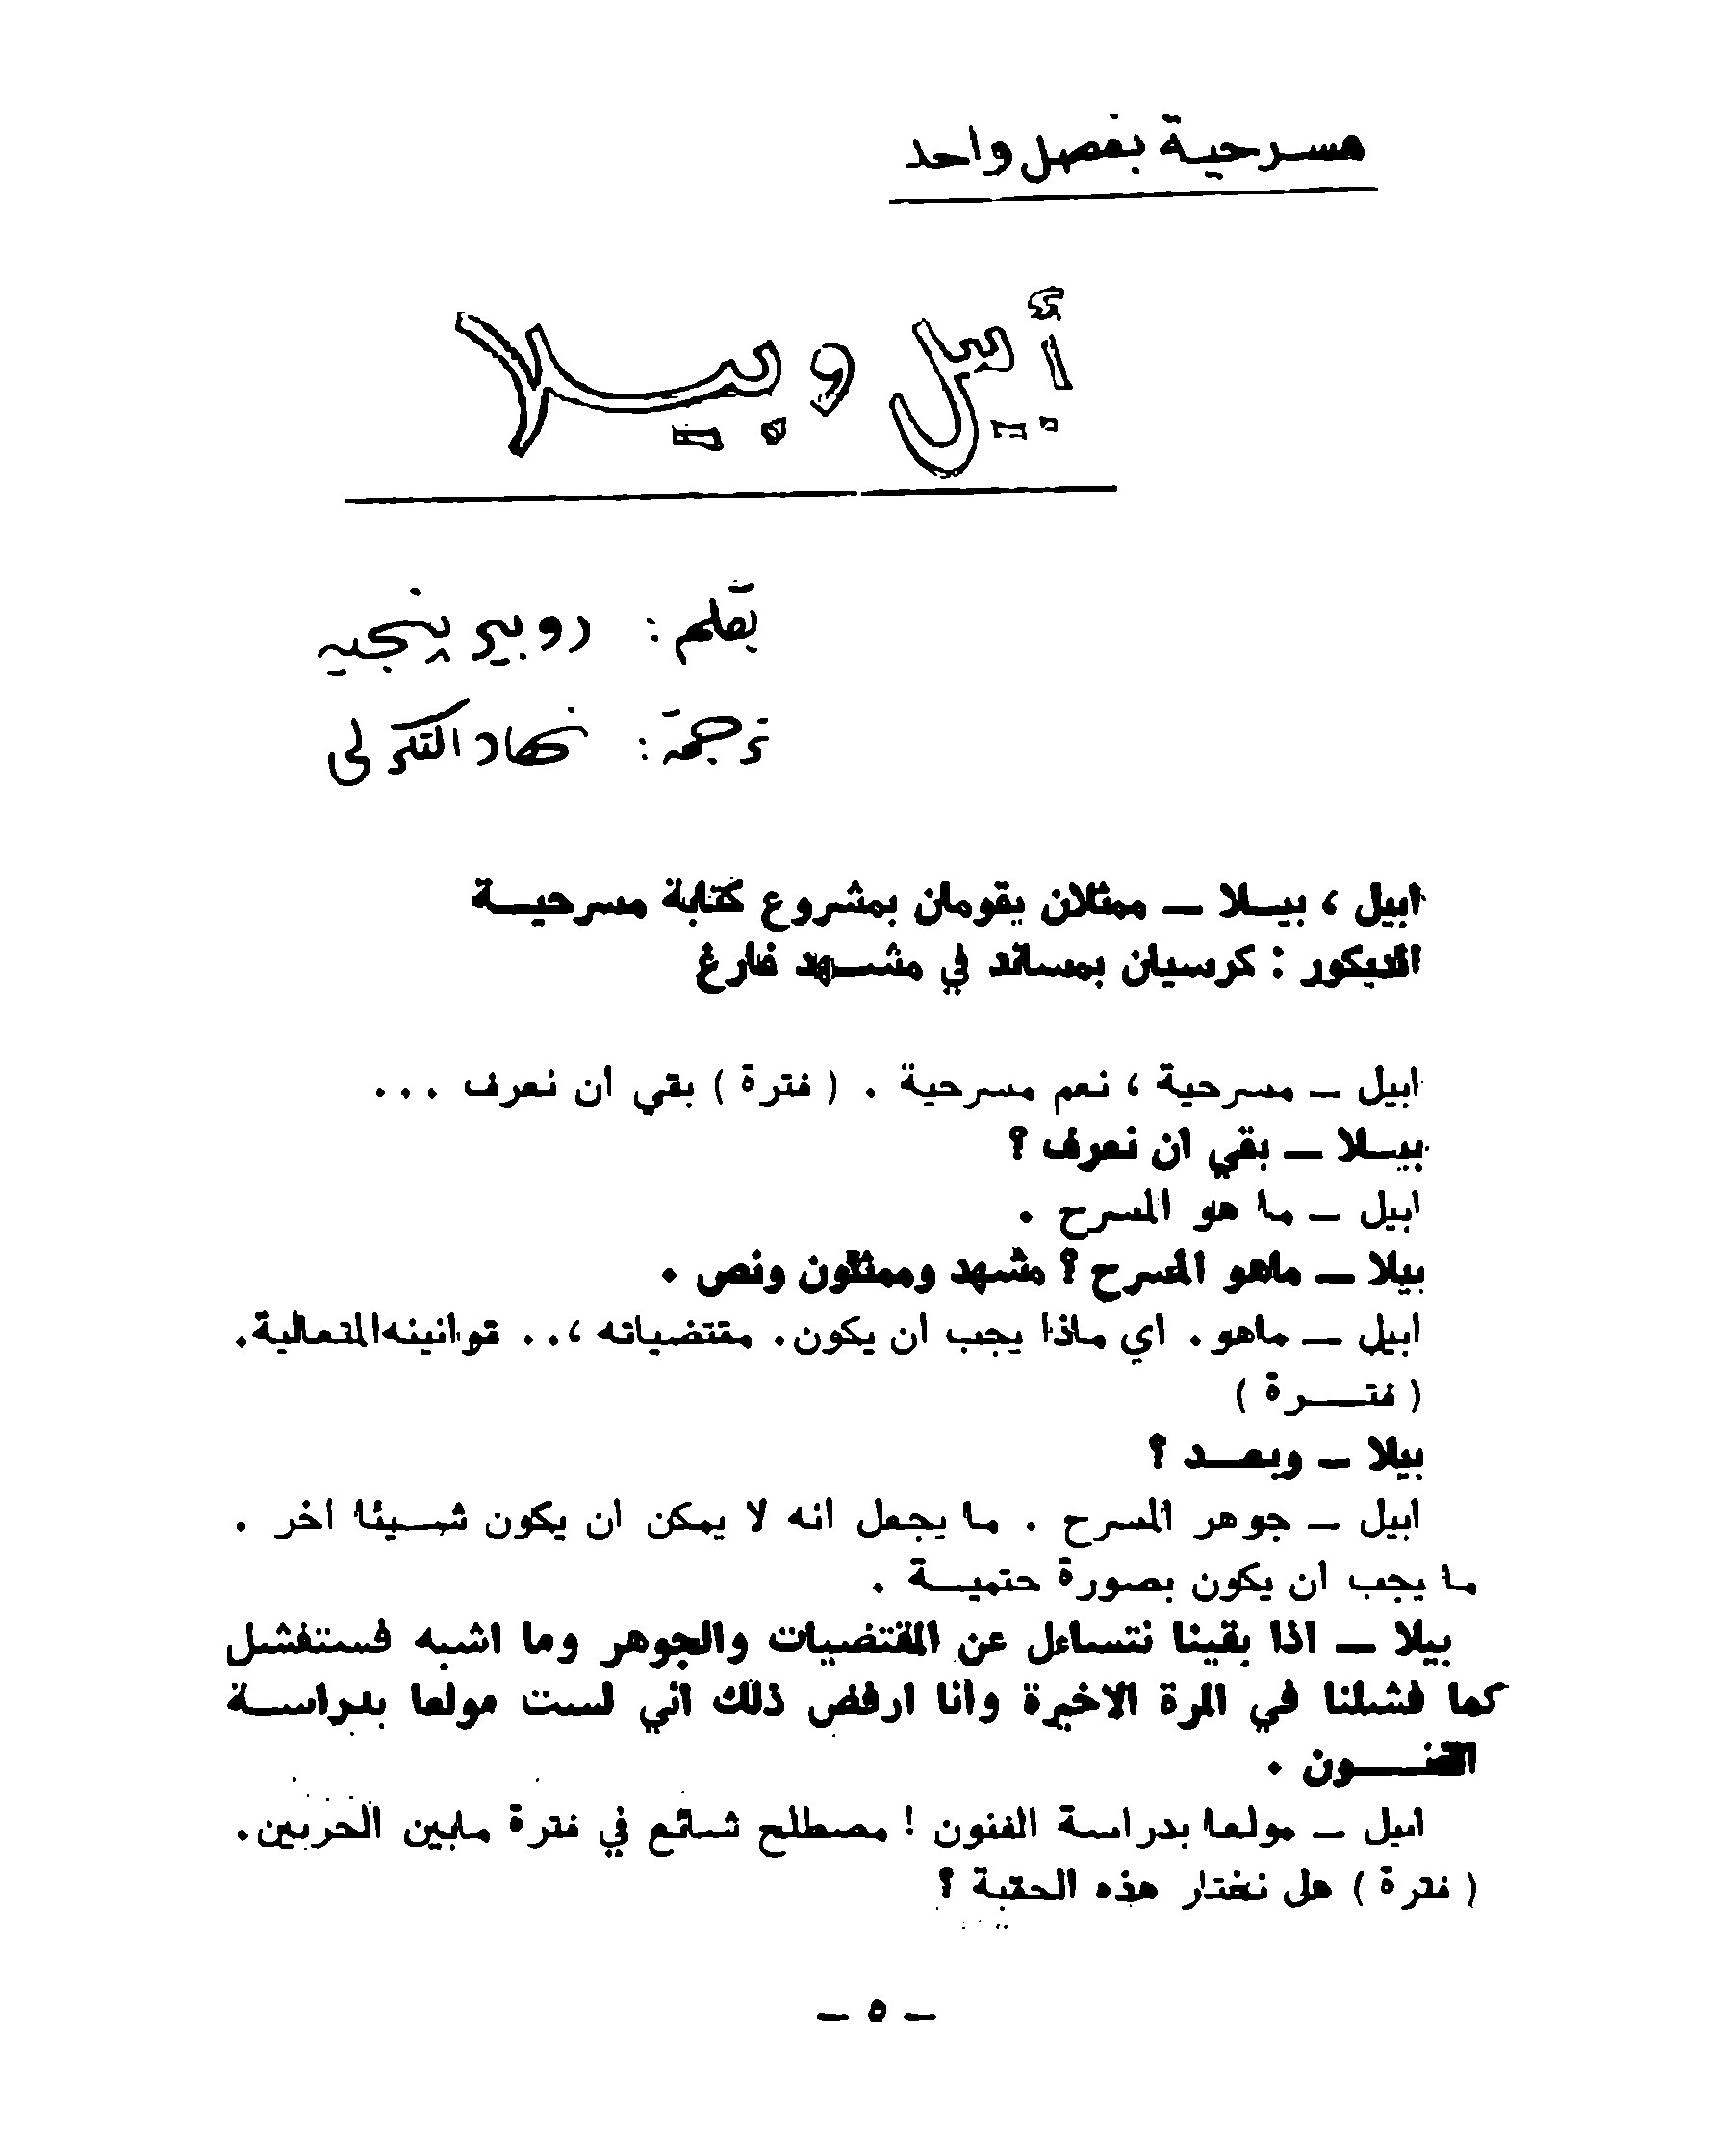 مسرحية بفصل واحد
أبيل وبيلا
بقلم : روبير پنجيه
ترجمة : نهاد التكرلي
ابيل ، بيلا — ممثلان يقومان بمشروع كتابة مسرحية
الديكور : كرسيان بمساند في مشهد فارغ
ابيل — مسرحية ، نعم مسرحية . ( فترة ) بقي ان نعرف ...
بيلا — بقي ان نعرف ؟
ابيل — ما هو المسرح .
بيلا — ماهو المسرح ؟ مشهد وممثلون ونص .
ابيل — ماهو . اي ماذا يجب ان يكون . مقتضياته ،.. قوانينه المتعالية .
( فترة )
بيلا — وبعد ؟
ابيل — جوهر المسرح . ما يجعل انه لا يمكن ان يكون شيئا اخر .
ما يجب ان يكون بصورة حتمية .
بيلا — اذا بقينا نتساءل عن المقتضيات والجوهر وما اشبه فسنفشل
كما فشلنا في المرة الاخيرة وانا ارفض ذلك اني لست مولعا بدراسة
الفنون .
ابيل — مولعا بدراسة الفنون ! مصطلح شائع في فترة مابين الحربين .
( فترة ) هل نختار هذه الحقبة ؟
— ٥ —